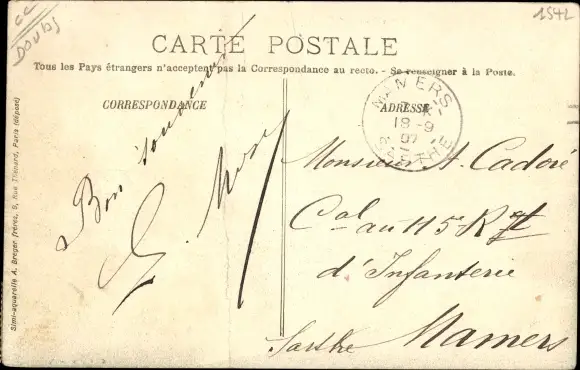 CC
DOUBS
1542
CARTE POSTALE
Tous les Pays étrangers n'acceptent pas la Correspondance au recto. - Se renseigner à la Poste.
CORRESPONDANCE
ADRESSE
MAMERS
18-9
07
SARTHE
Bon souvenir
Simi-aquarelle A. Breger frères, 9, Rue Thénard, Paris (déposé)
Monsieur A. Cadoré
Cal au 115e Rgt
d'Infanterie
Sarthe Mamers